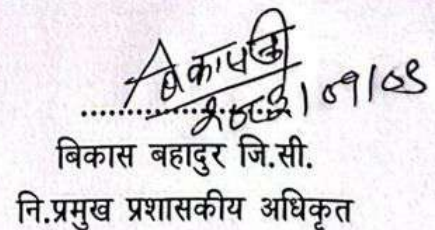 ..................
बिकास बहादुर जि.सी.
नि.प्रमुख प्रशासकीय अधिकृत